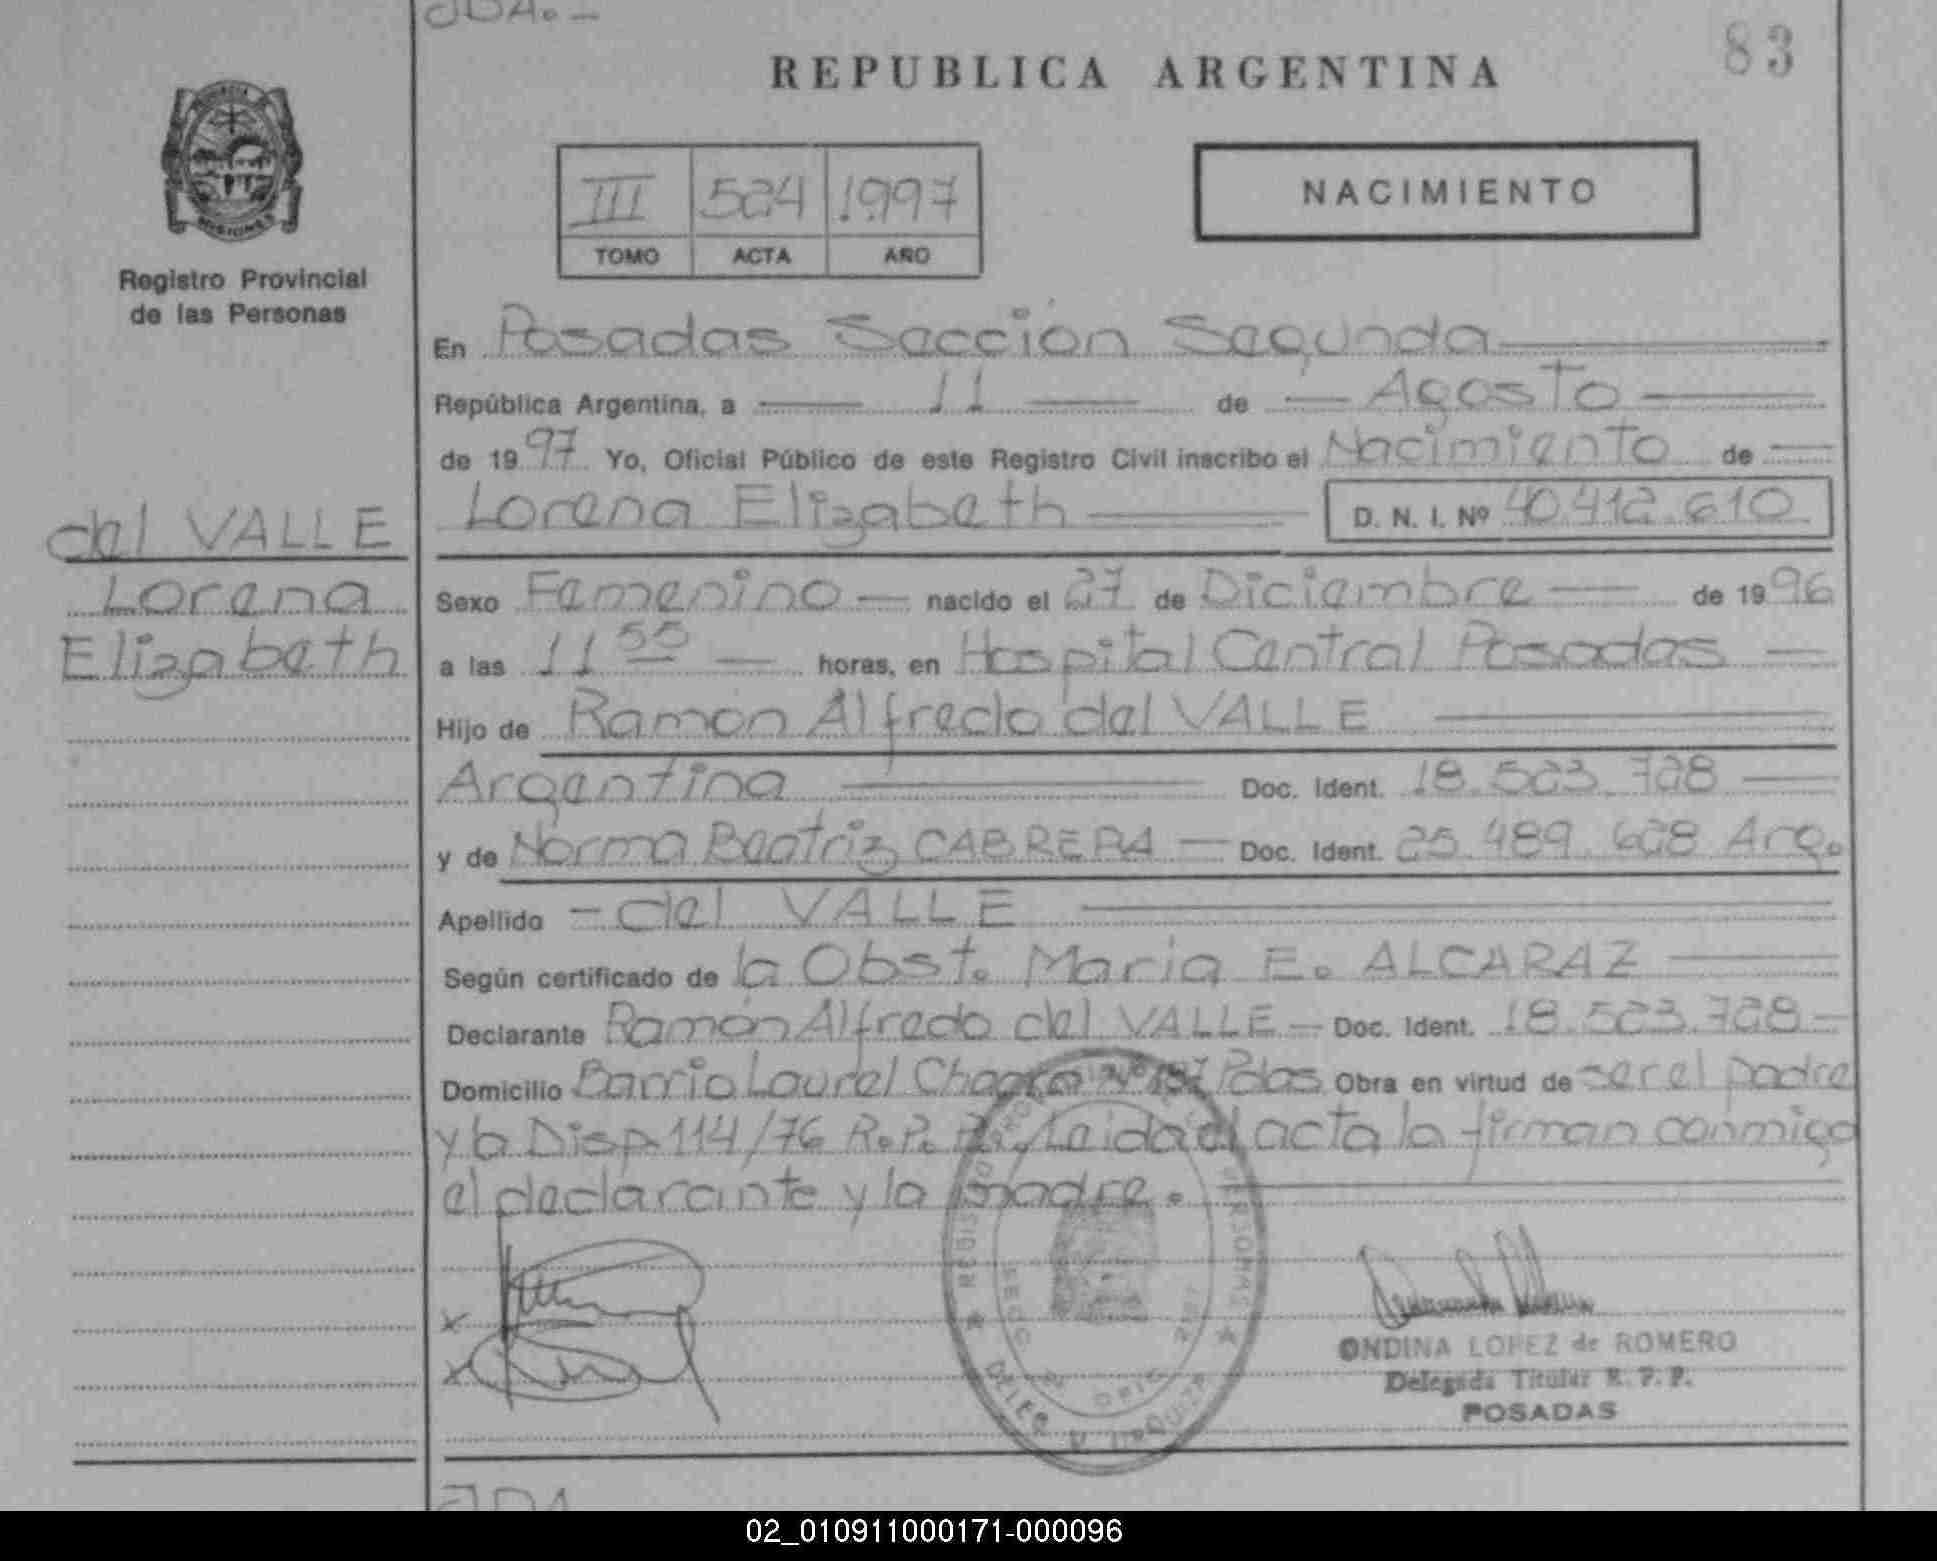 83
REPUBLICA ARGENTINA
III 524 1997
TOMO ACTA AÑO
NACIMIENTO
PROVINCIA DE MISIONES
Registro Provincial
de las Personas
En Posadas Sección Segunda
República Argentina, a 11 de Agosto
de 1997 Yo, Oficial Público de este Registro Civil inscribo el Nacimiento de
Lorena Elizabeth D. N. I. Nº 40.412.610
del VALLE
Lorena
Elizabeth
Sexo Femenino nacido el 27 de Diciembre de 1996
a las 11 55 horas, en Hospital Central Posadas
Hijo de Ramon Alfredo del VALLE
Argentina Doc. Ident. 18.523.728
y de Norma Beatriz CABRERA Doc. Ident. 25.489.628 Arg.
Apellido del VALLE
Según certificado de la Obst. Maria E. ALCARAZ
Declarante Ramón Alfredo del VALLE Doc. Ident. 18.523.728
Domicilio Barrio Laurel Chacra Nº 157 Pdas Obra en virtud de ser el padre
y la Disp. 114/76 R.P.P. Leida el acta la firman conmigo
el declarante y la madre.
x
x
ONDINA LOPEZ de ROMERO
Delegada Titular R. P. P.
POSADAS
02_010911000171-000096